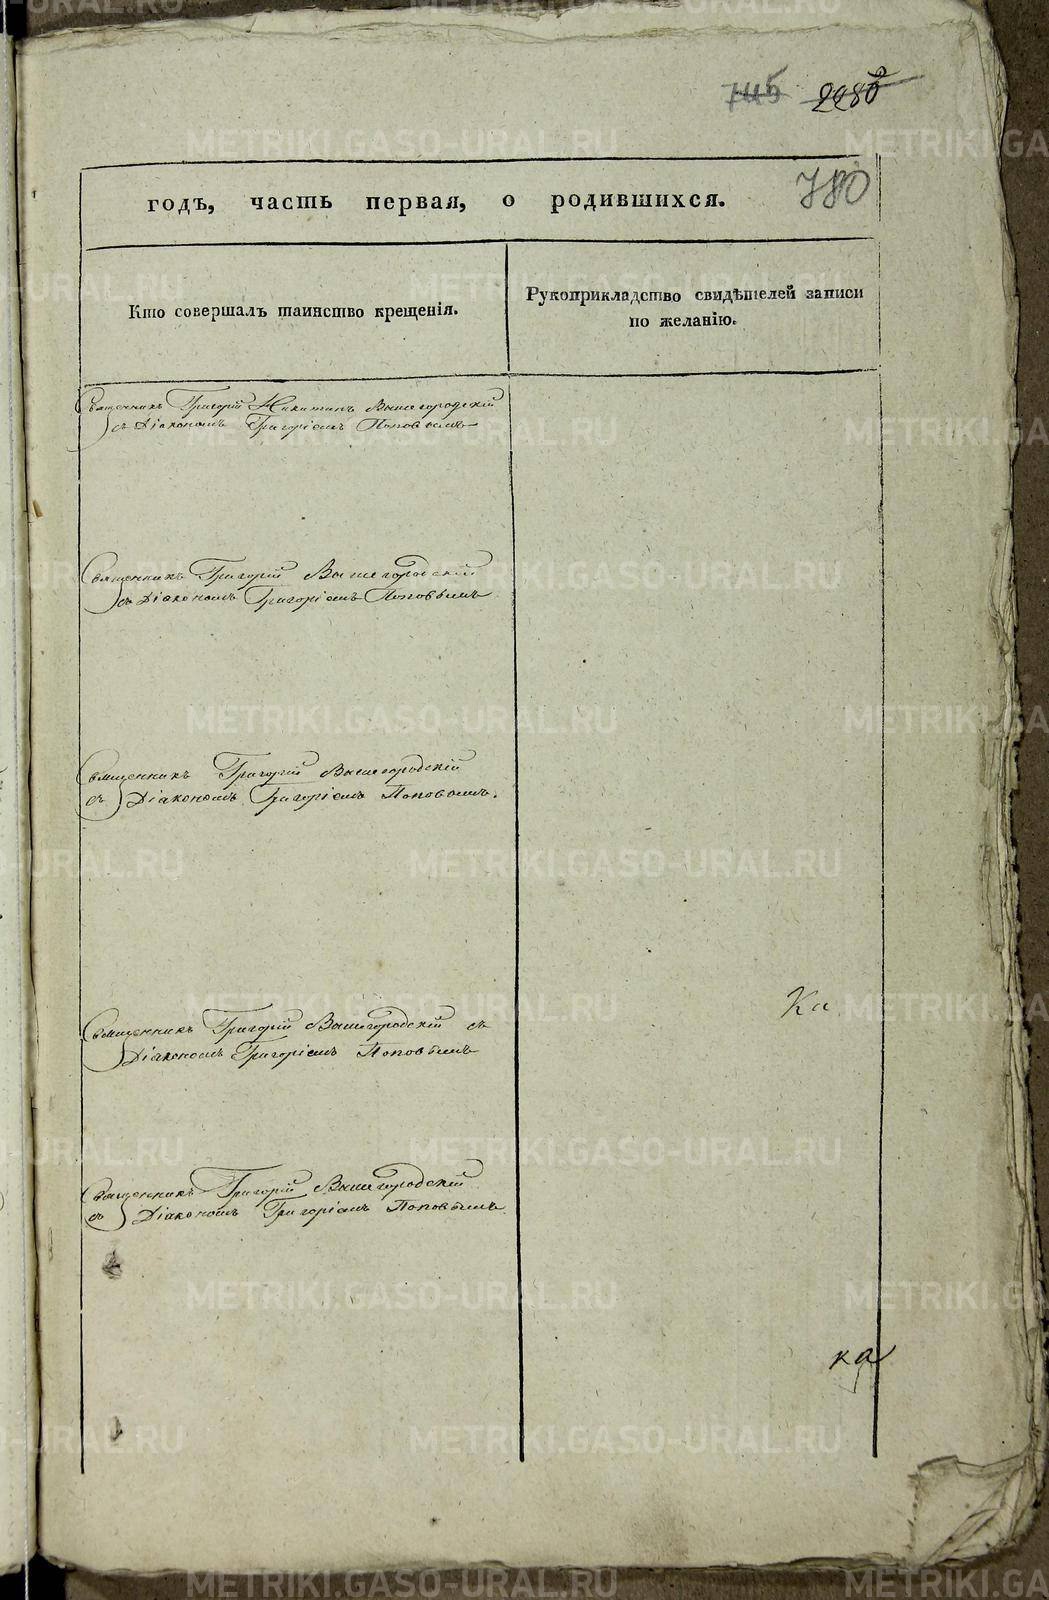 745 2280
780
годъ, часть первая, о родившихся.
Кто совершалъ таинство крещенія.
Рукоприкладство свидѣтелей записи
по желанію.
Священникъ Григорій Никитинъ Вышегородскій
съ Діакономъ Григоріемъ Поповымъ
Священникъ Григорій Вышегородскій
съ Діакономъ Григоріемъ Поповымъ
Священникъ Григорій Вышегородскій
съ Діакономъ Григоріемъ Поповымъ.
Священникъ Григорій Вышегородскій съ
Діакономъ Григоріемъ Поповымъ
Священникъ Григорій Вышегородскій
съ Діакономъ Григоріемъ Поповымъ
Ка
ка
METRIKI.GASO-URAL.RU